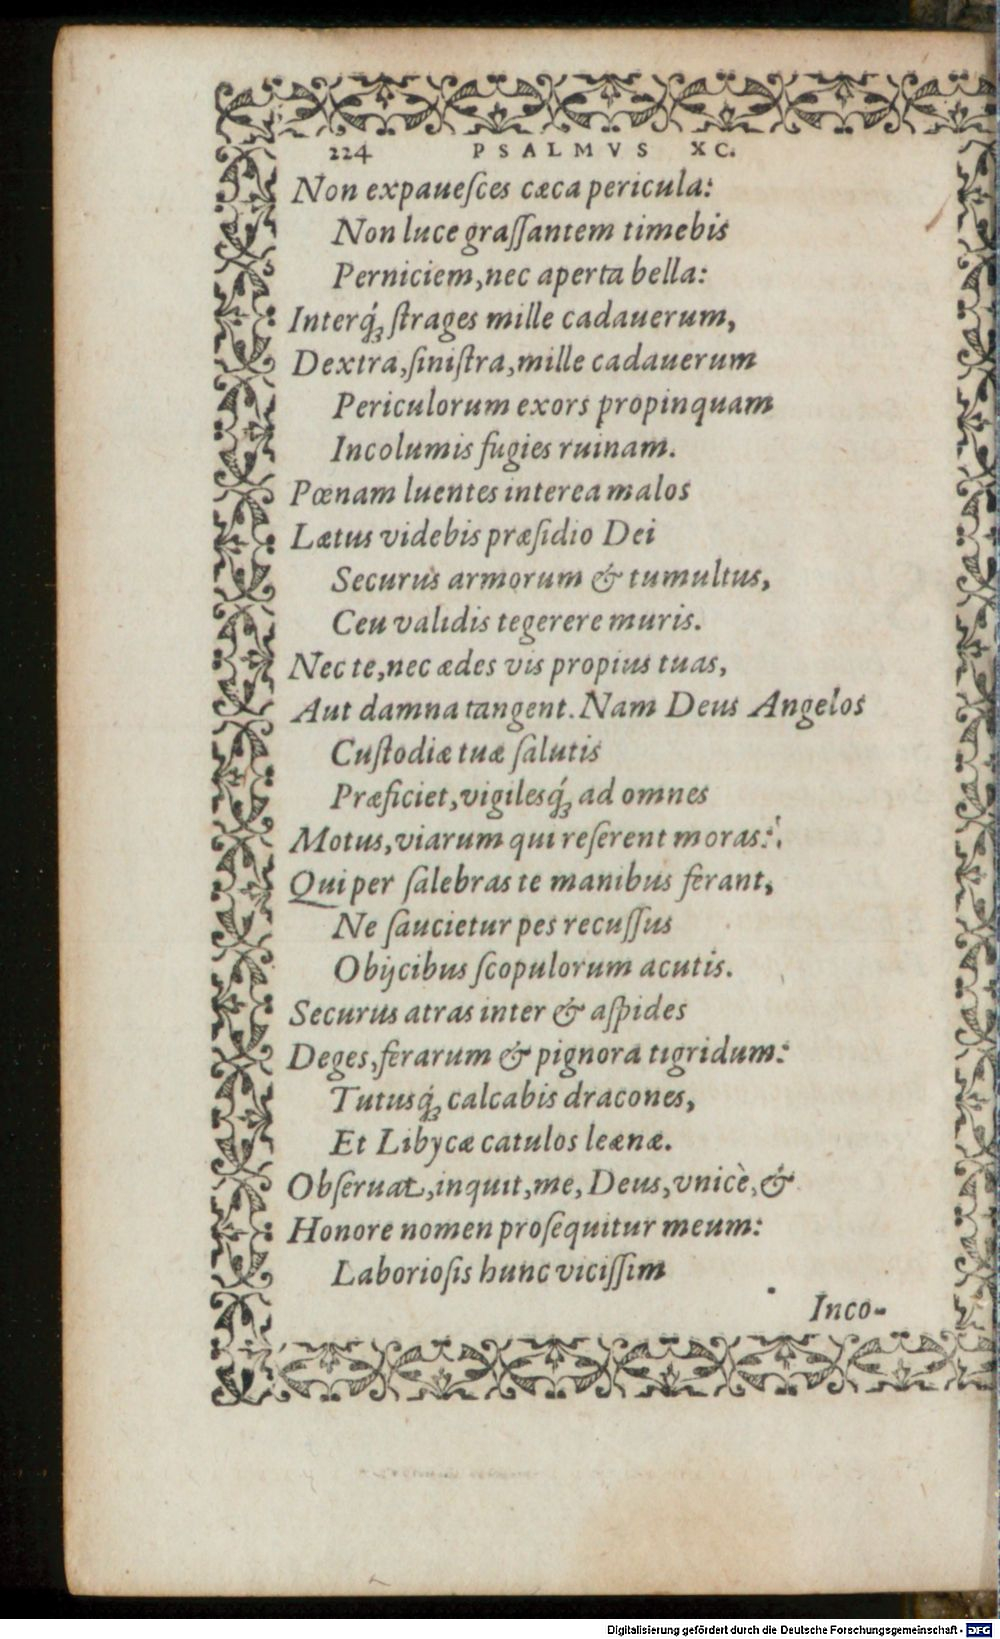 224 PSALMVS XC.
Non expaueſces cæca pericula:
Non luce graſſantem timebis
Perniciem, nec aperta bella:
Interq́ꝫ ſtrages mille cadauerum,
Dextra, ſiniſtra, mille cadauerum
Periculorum exors propinquam
Incolumis fugies ruinam.
Pœnam luentes interea malos
Lætus videbis præſidio Dei
Securus armorum & tumultus,
Ceu validis tegerere muris.
Nec te, nec ædes vis propius tuas,
Aut damna tangent. Nam Deus Angelos
Cuſtodiæ tuæ ſalutis
Præficiet, vigilesq́ꝫ ad omnes
Motus, viarum qui reſerent moras:
Qui per ſalebras te manibus ferant,
Ne ſaucietur pes recuſſus
Obijcibus ſcopulorum acutis.
Securus atras inter & aſpides
Deges, ferarum & pignora tigridum:
Tutusq́ꝫ calcabis dracones,
Et Libycæ catulos leænæ.
Obſeruat, inquit, me, Deus, vnicè, &
Honore nomen proſequitur meum:
Laborioſis hunc viciſſim
Inco-
Digitalisierung gefördert durch die Deutsche Forschungsgemeinschaft - DFG